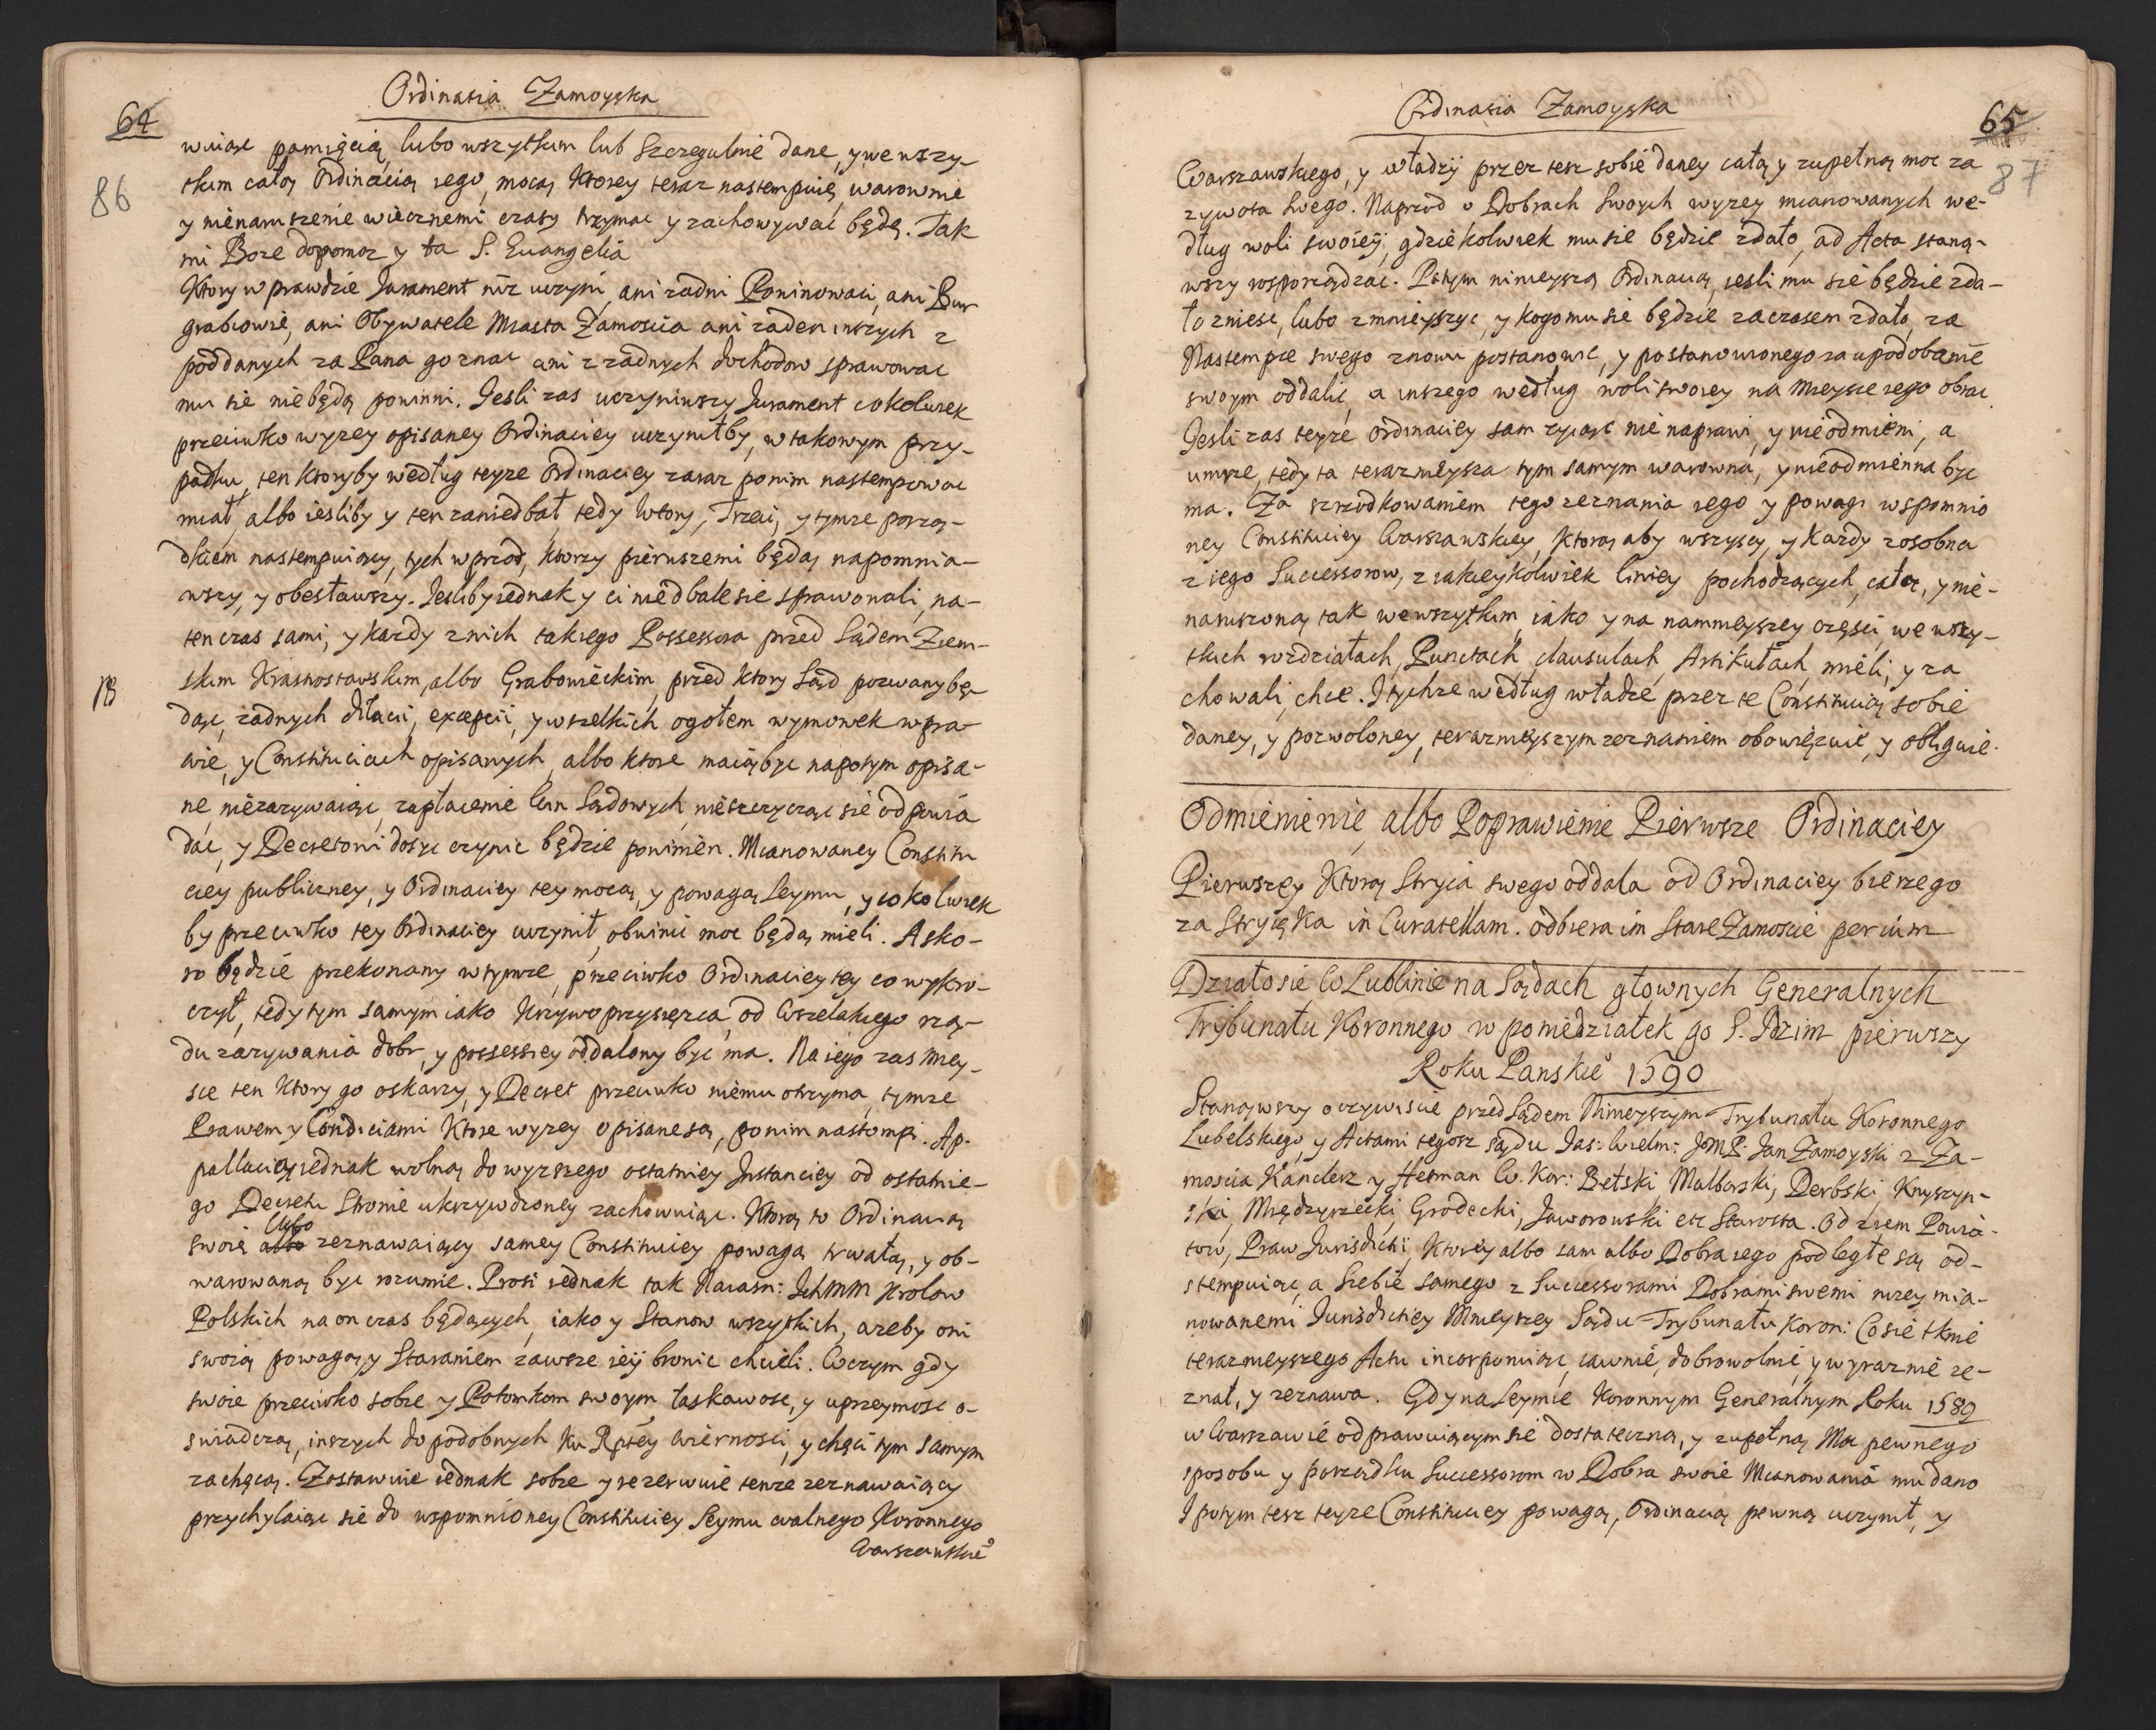 Ordinatia Zamoyska
64
86
wuiąc pamięcią, lubo wszytkim lub Szczegulnie dane, y we wszy-
tkim całą Ordinacią iego, mocą Ktorey teraz nastempuię, warownie
y nienaruszenie wiecznemi czasy trzymac y zachowywać będę. Tak
mi Boze dopomoz y ta S. Euangelia
Ktory w prawdzie Jurament niz uczyni, ani zadni Powinowaci, ani Bur
grabiowie, ani Obywatele Miasta Zamoscia ani zaden inszych z
poddanych za Pana go znac ani z zadnych dochodow sprawowac
mu sie niebędą powinni. Jesli zas uczyniwszy Jurament cokolwiek
przeciwko wyzey opisaney Ordinaciey uczyniłby, w takowym przy-
padku, ten ktoryby według teyze Ordinaciey zaraz ponim nastempowac
miał, albo iesliby y ten zaniedbał, tedy wtory, Trzeci, y tymze porzą-
dkiem nastempuiący, tych wprzod, ktorzy pierwszemi będą napomnia-
wszy, y obesławszy. Jesliby iednak y ci niedbale sie sprawowali, na-
tenczas sami, y kazdy znich takiego Possessora przed Sądem Ziem-
NB
skim Krasnostawskim, albo Grabowieckim, przed ktory Sąd pozwany bę-
dąc, zadnych dilacii, excepcii, y wszelkich ogołem wymowek w pra-
wie, y Constituciach opisanych, albo ktore maią byc napotym opisa-
ne, niezazywaiąc, zapłacenie win Sądowych, nieszczycząc sie odpowia
dac, y Decretowi dosyc czynic będzie powinien. Mianowaney Constitu
ciey publiczney, y Ordinaciey tey mocą, y powagą Seymu, y cokolwiek
by przeciwko tey Ordinaciey uczynił, obwinic moc będą mieli. A sko-
ro będzie przekonany w tymze, przeciwko Ordinaciey tey co wykro-
czył, tedy tym samym iako Krzywoprzysięzca od wszelakiego rzą-
du zazywania dobr, y possessiey oddalony byc ma. Na iego zas miey-
sce ten Ktory go oskarzy, y Decret przeciwko niemu otrzyma, tymze
Prawem y Condiciami Ktore wyzey opisane są, ponim nastompi. Ap-
pallacią iednak wolną do wyzszego ostatniey Instanciey od ostatnie-
go Decretu Stronie ukrzywdzoney zachowuiąc. Ktorą to Ordinacią
lubo
swoię albo zeznawaiący samey Constituciey powagą trwałą, y ob-
warowaną byc rozumie. Prosi iednak tak Naiasn: Ichmm Krolow
Polskich na on czas będących, iako y Stanow wszytkich, azeby oni
swoią powagą, y Staraniem zawsze iey bronic chcieli. W czym gdy
swoie przeciwko sobie y Potomkom swoym łaskawosc, y uprzeymosc o-
swiadczą, inszych do podobnych Ku Rptey wiernosci, y chęci tym samym
zachęcą. Zostawuie iednak sobie y rezerwuie tenze zeznawaiący
przychylaiąc sie do wspomnioney Constituciey Seymu walnego Koronnego
Warszawskie°
Ordinatia Zamoyska
65
87
Warszawskiego, y władzy przez tesz sobie daney całą y zupełną moc za
zywota swego. Naprzod o Dobrach Swoych wyzey mianowanych we-
dług woli swoiey, gdziekolwiek mu sie będzie zdało, ad Acta staną-
wszy rosporządzac. Potym ninieyszą Ordinacią, iesli mu sie będzie zda-
ło zniesc, lubo zmnieyszyc, y kogo mu sie będzie zaczasem zdało, za
Nastempce swego znowu postanowic, y postanowionego za upodobanie
swoym oddalic, a inszego według woli swoiey na Mieysce iego obrac.
Jesli zas teyze Ordinaciey sam zyiąc nie naprawi, y nieodmieni, a
umrze, tedy ta terazmieysza tym samym warowna, y nieodmienna byc
ma. Za szrodkowaniem tego zeznania iego y powagi wspomnio
ney Constituciey Warszawskiey, Ktorą aby wszyscy, y Kazdy zosobna
z iego Successorow, z iakieykolwiek liniey pochodzących, całą, y nie-
naruszoną tak we wszytkim, iako y na namnieyszey części, we wszy-
tkich rozdziałach, Punctach, clausulach, Artikułach, mieli, y za
chowali, chce. I tychze według władze przez te Constitucią sobie
daney, y pozwoloney, terazmieyszym zeznaniem obowięzuie, y obliguie.
Odmienienie, albo Poprawienie Pierwsze Ordinaciey
Pierwszey Ktorą Stryia swego oddala od Ordinaciey bierzego
za Stryięka in Curatellam. odbiera im Stare Zamoscie per cum
Działosie w Lublinie na Sądach głownych Generalnych
Trybunału Koronnego w poniedziałek po S. Idzim pierwszy
Roku Panskie° 1590
Stanąwszy oczywiscie przed Sądem Ninieyszym Trybunału Koronnego
Lubelskiego, y Actami tegosz sądu Jas: Wielm: JMP. Jan Zamoyski z Za-
moscia Kanclerz y Hetman W. Kor: Bełski, Malborski, Derbski, Knyszyn-
ski, Międzyrzecki, Grodecki, Jaworowski etc Starosta. Od ziem Powia-
tow, Praw Jurisdicii, Ktorey albo sam albo Dobra iego podległe są od-
stempuiąc, a Siebie samego z Successorami Dobrami swemi nizey mia-
nowanemi Jurisdictiey Ninieyszey Sądu Trybunału Koron: Cosie tknie
terazmieyszego Actu incorporuiąc, iawnie, dobrowolnie, y wyraznie ze-
znał, y zeznawa. Gdy na Seymie Koronnym Generalnym Roku 1589
w Warszawie odprawuiącym sie dostateczną, y zupełną Moc pewnego
sposobu y porządku Successorom w Dobra swoie Mianowania mu dano
I potym tesz teyze Constituciey powagą, Ordinacią pewną uczynił, y